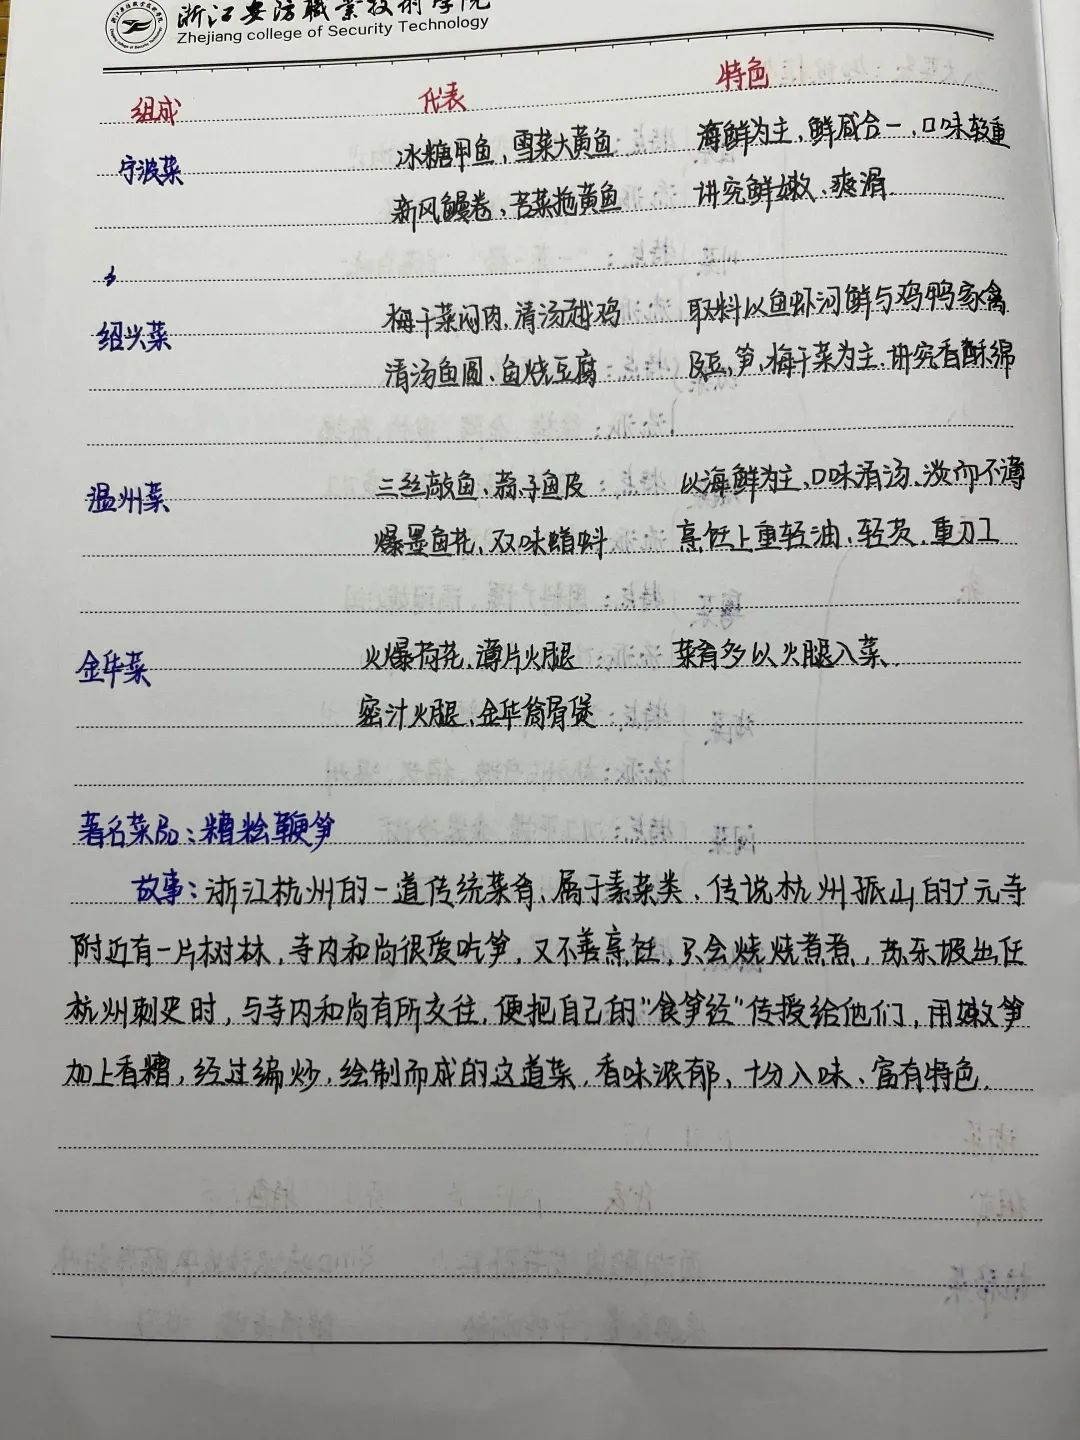 浙江安防職業技術学院
Zhejiang college of Security Technology
组成 代表 特色
宁波菜 冰糖甲鱼，雪菜大黄鱼 海鲜为主，鲜咸合一，口味较重
新风鳗卷、苔菜拖黄鱼 讲究鲜嫩、爽滑.
绍兴菜 梅干菜闷肉，清汤越鸡 取料以鱼虾河鲜与鸡鸭家禽
清汤鱼圆、鱼烧豆腐 及豆，笋，梅干菜为主，讲究香酥绵
温州菜 三丝敲鱼、蒜子鱼皮 以海鲜为主，口味清汤、淡而不薄
爆墨鱼花、双味蝤蛑 烹饪上重轻油、轻芡、重刀工
金华菜 火爆荷花，薄片火腿 菜肴多以火腿入菜.
密汁火腿、金华筒骨煲
著名菜品：糟烩鞭笋
故事：浙江杭州的一道传统菜肴、属于素菜类、传说杭州孤山的广元寺
附近有一片树林，寺内和尚很爱吃笋，又不善烹饪，只会烧烧煮煮，苏东坡出任
杭州刺史时，与寺内和尚有所交往，便把自己的“食笋经”传授给他们，用嫩笋
加上香糟，经过编炒，绘制而成的这道菜，香味浓郁、十分入味、富有特色.